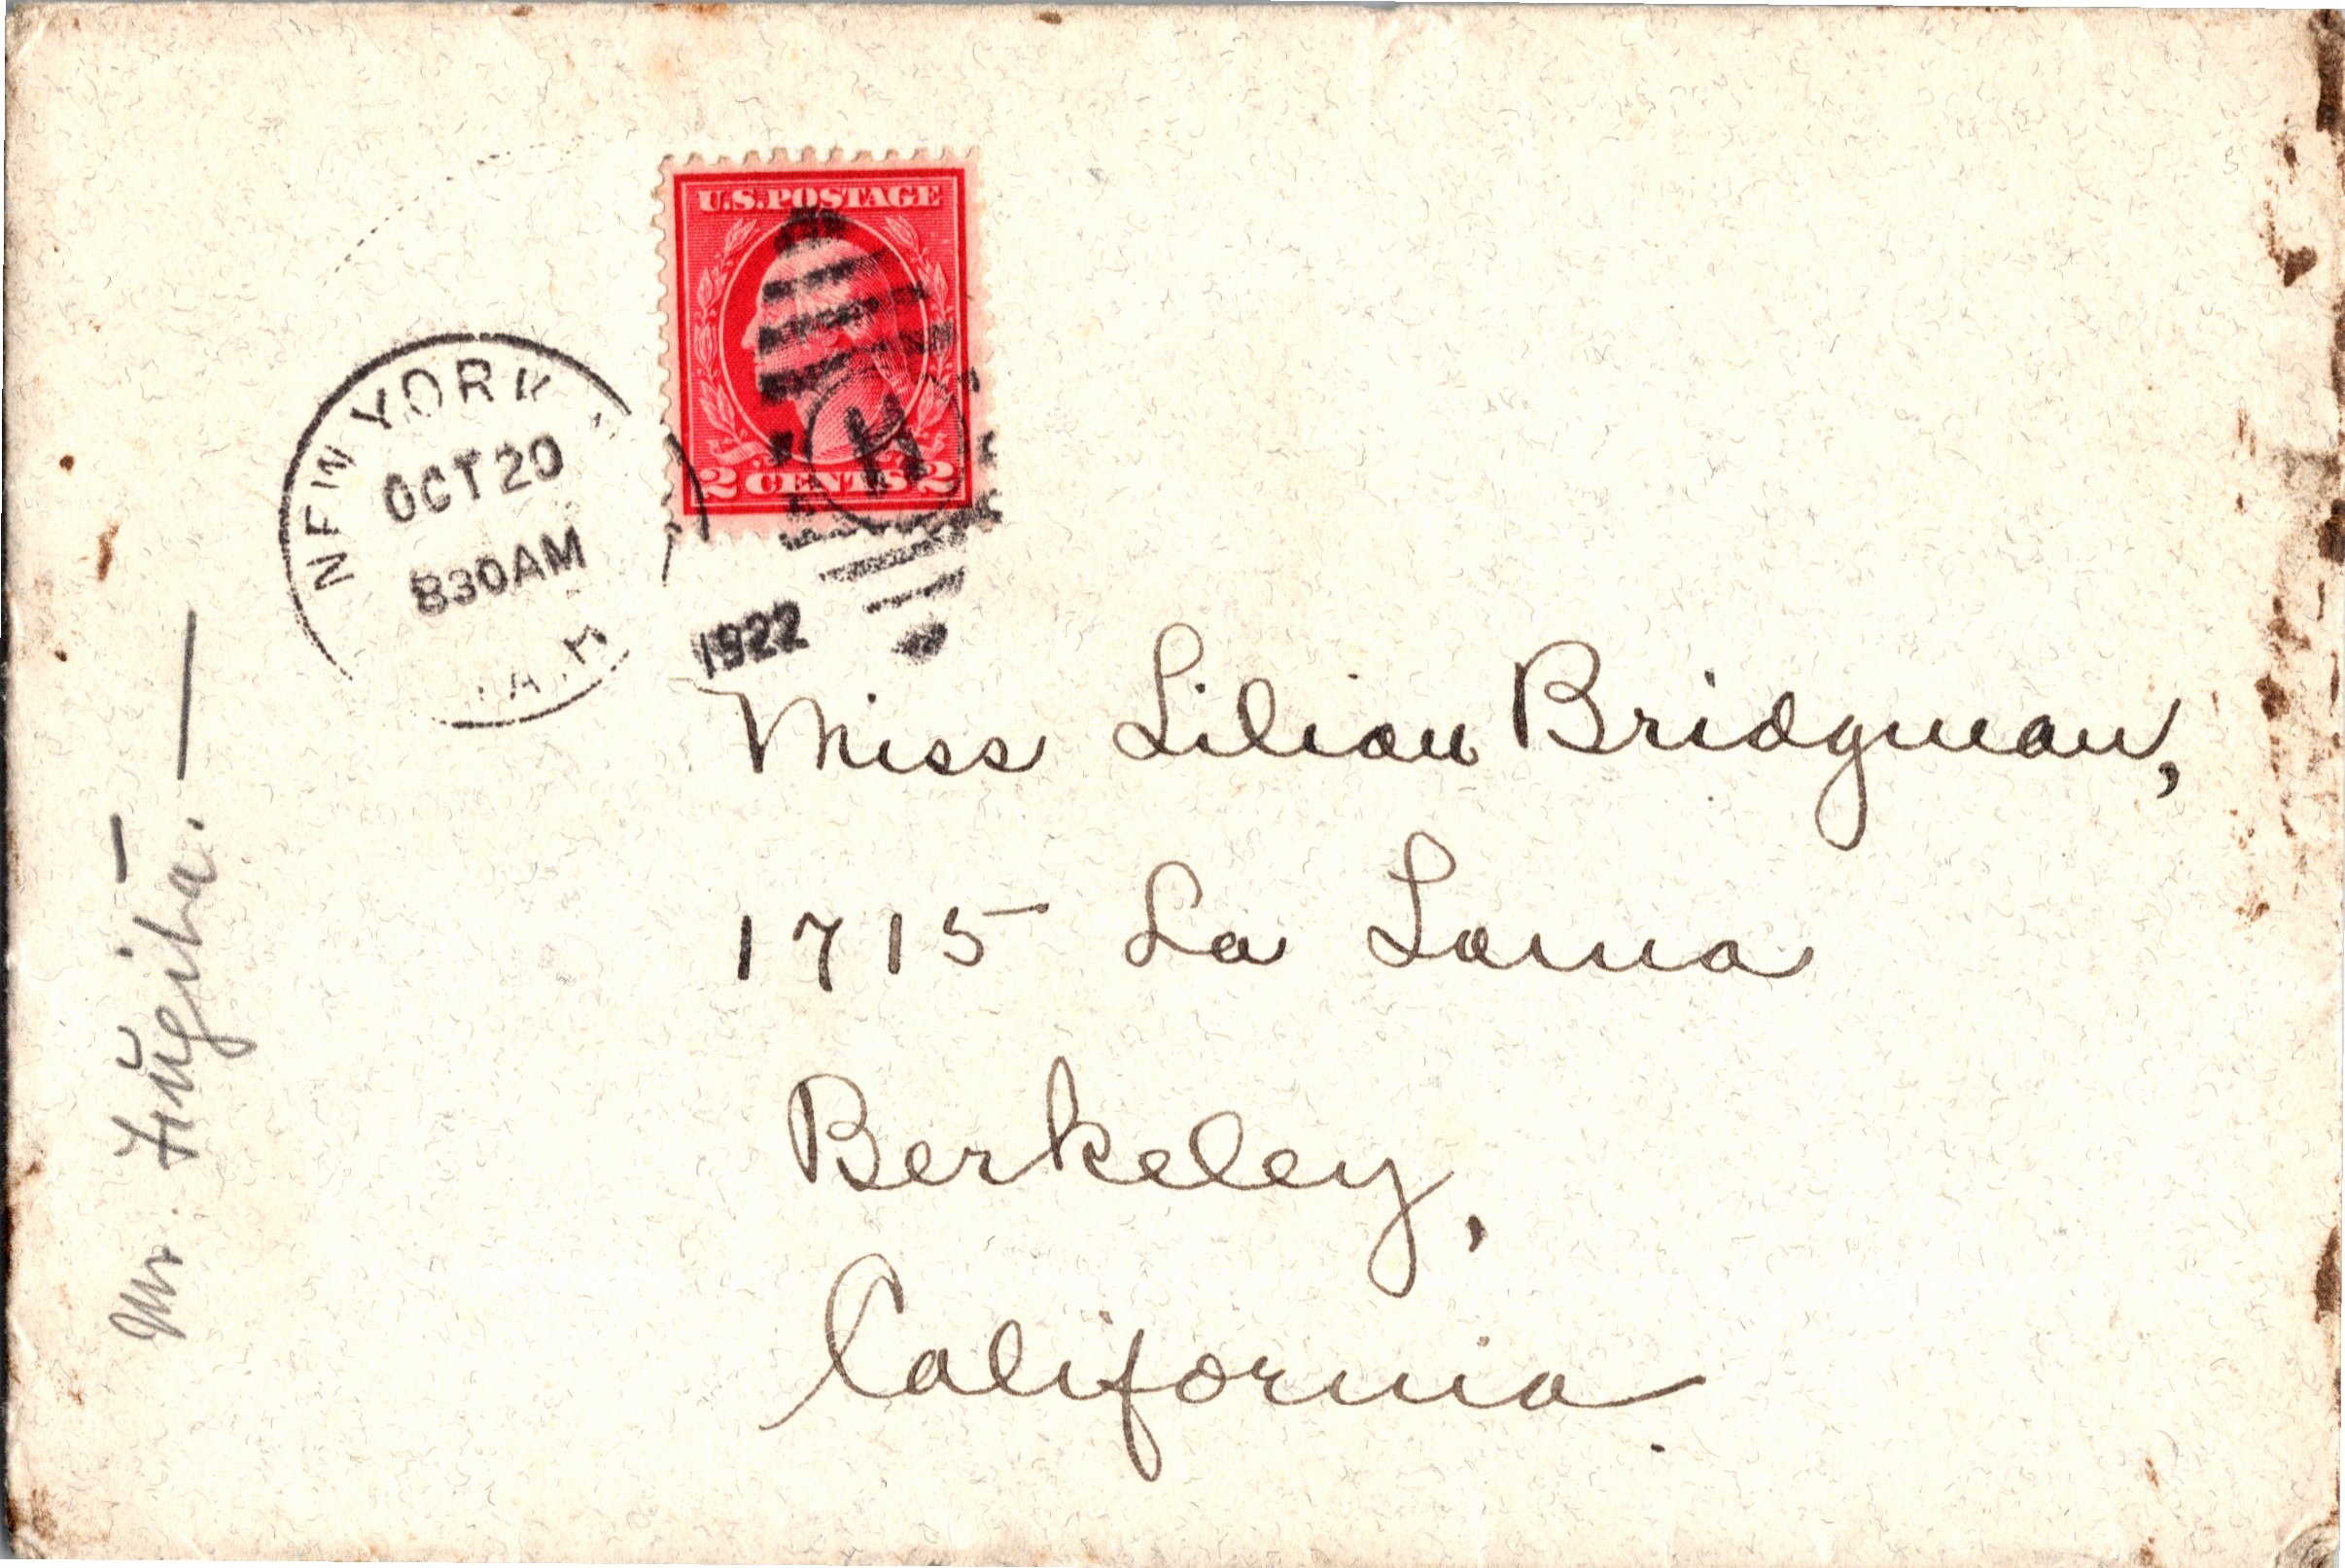 NEW YORK
OCT 20
830AM
1922
U.S. POSTAGE
2 CENTS 2
H
Miss Lilian Bridgman,
1715 La Loma
Berkeley,
California
Mr. Fugita. —